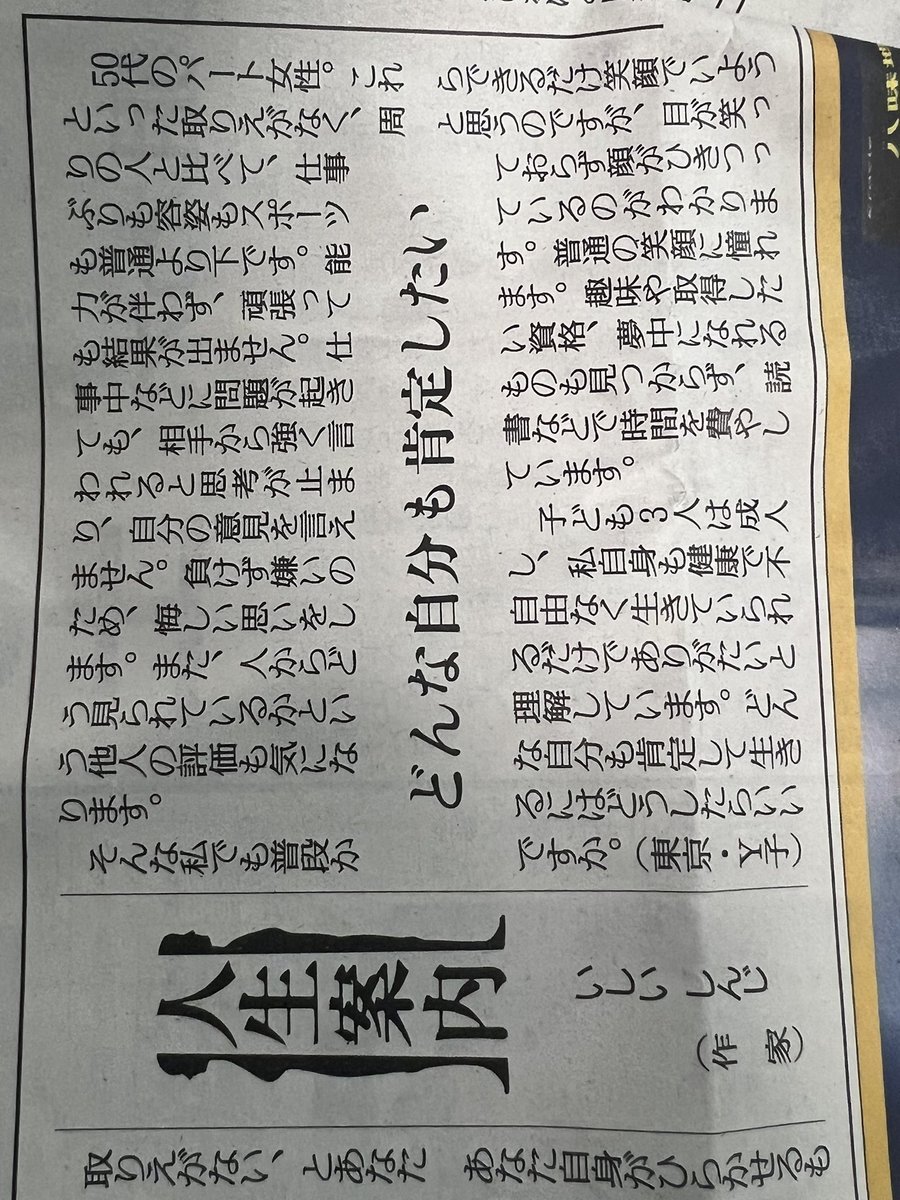 どんな自分も肯定したい
50代のパート女性。これ
といった取りえがなく、周
りの人と比べて、仕事
ぶりも容姿もスポーツ
も普通より下です。能
力が伴わず、頑張って
も結果が出ません。仕
事中などに問題が起き
ても、相手から強く言
われると思考が止ま
り、自分の意見を言え
ません。負けず嫌いの
ため、悔しい思いをし
ます。また、人からど
う見られているかとい
う他人の評価も気にな
ります。
そんな私でも普段か
らできるだけ笑顔でいよう
と思うのですが、目が笑っ
ておらず顔がひきつっ
ているのがわかりま
す。普通の笑顔に憧れ
ます。趣味や取得した
い資格、夢中になれる
ものも見つからず、読
書などで時間を費やし
ています。
子ども3人は成人
し、私自身も健康で不
自由なく生きていられ
るだけでありがたいと
理解しています。どん
な自分も肯定して生き
るにはどうしたらいい
ですか。(東京・Y子)
人生案内
いしい しんじ
(作家)
取りえがない、とあなた
あなた自身がひらかせるも